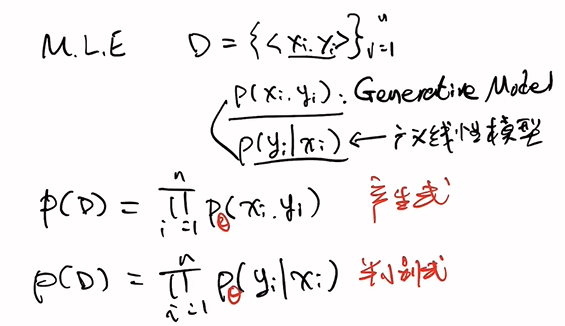 M.L.E D = {<xᵢ.yᵢ>}ⁿᵢ₌₁
p(xᵢ.yᵢ): Generative Model
p(yᵢ|xᵢ) ← 广义线性模型
p(D) = ∏ⁿᵢ₌₁ p_θ(xᵢ.yᵢ) 产生式
p(D) = ∏ⁿᵢ₌₁ p_θ(yᵢ|xᵢ) 判别式